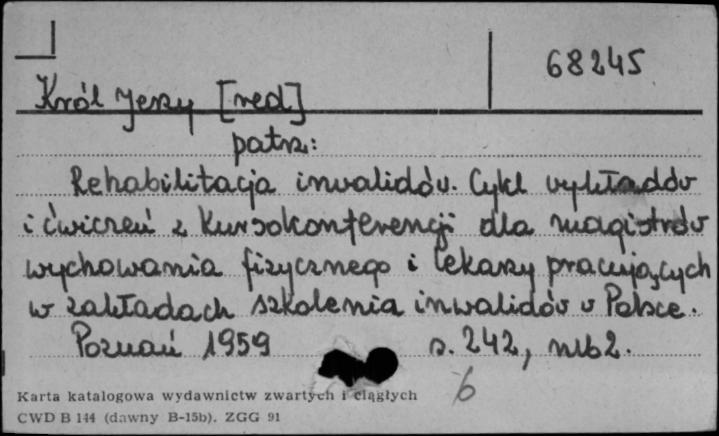 68245
Król Jerzy [red]
patrz:
Rehabilitacja inwalidów. Cykl wykładów
i ćwiczeń z Kursokonferencji dla magistrów
wychowania fizycznego i lekarzy pracujących
w zakładach szkolenia inwalidów w Polsce.
Poznań 1959 s. 242, nlb 2.
6
Karta katalogowa wydawnictw zwartych i ciągłych
CWD B 144 (dawny B-15b). ZGG 91